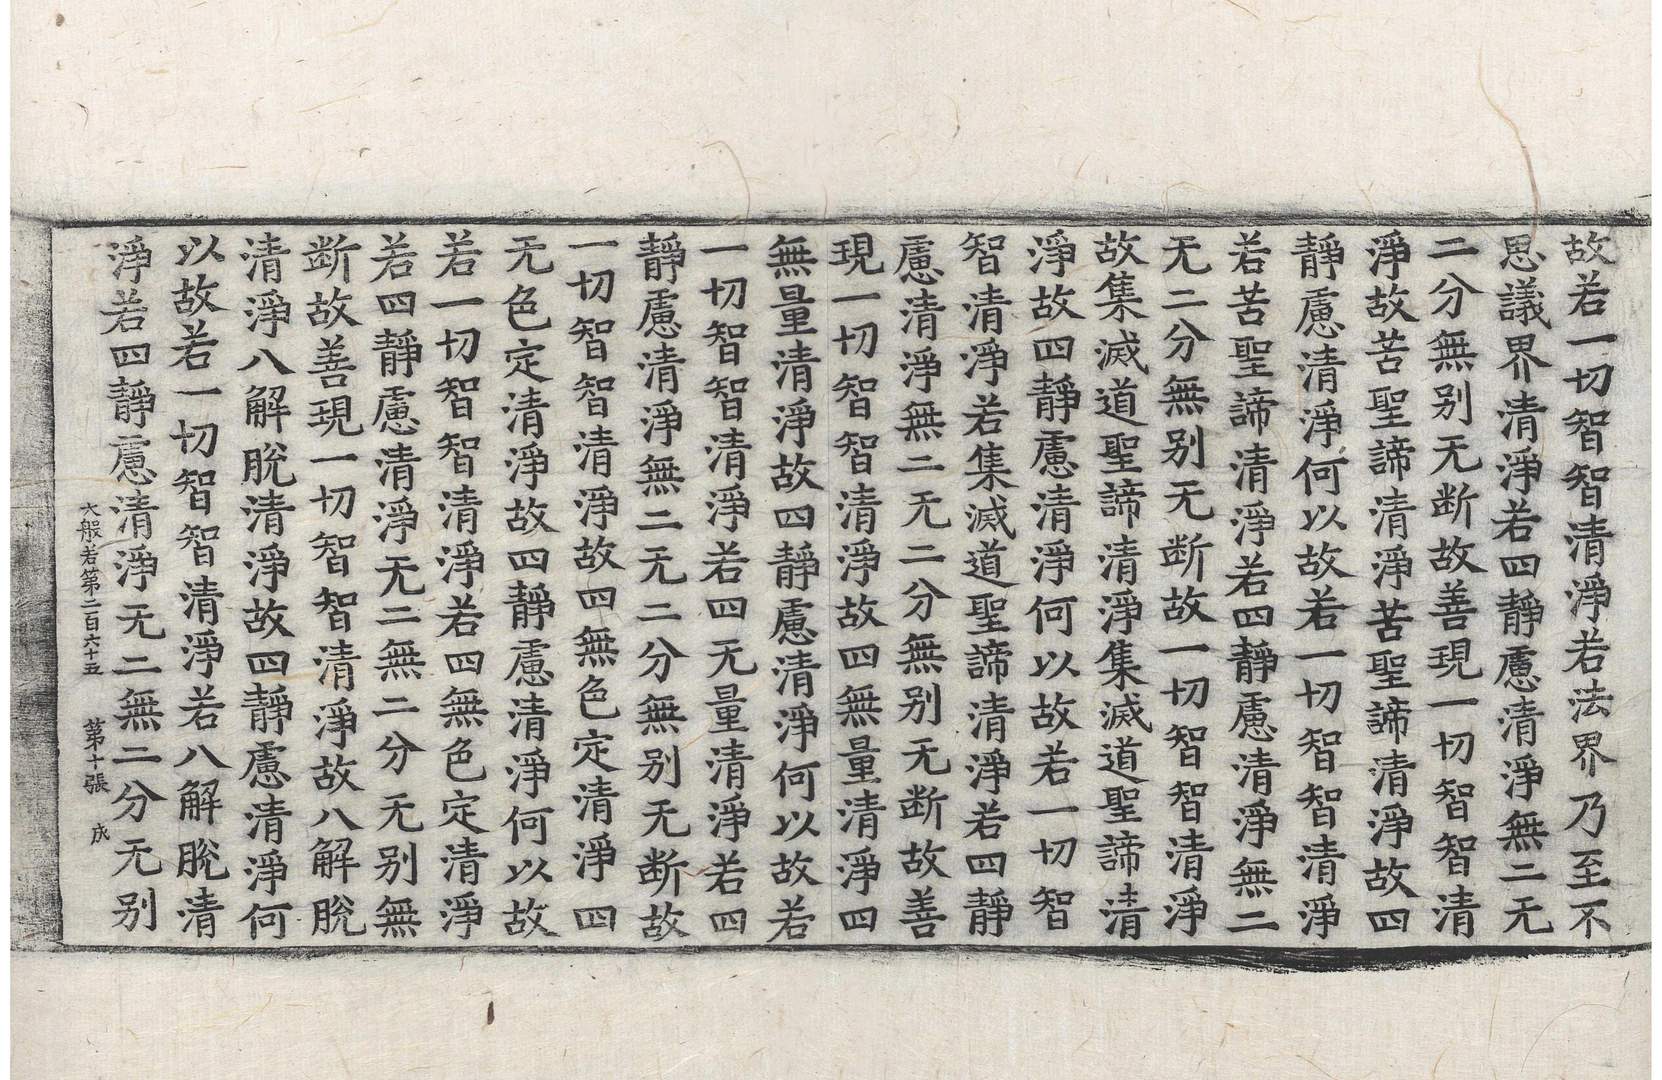 故若一切智智清淨若法界乃至不
思議界清淨若四靜慮清淨無二无
二分無别无断故善現一切智智清
淨故苦聖諦清淨苦聖諦清淨故四
靜慮清淨何以故若一切智智清淨
若苦聖諦清淨若四靜慮清淨無二
无二分無别无断故一切智智清淨
故集滅道聖諦清淨集滅道聖諦清
淨故四靜慮清淨何以故若一切智
智清淨若集滅道聖諦清淨若四靜
慮清淨無二无二分無别无断故善
現一切智智清淨故四無量清淨四
無量清淨故四靜慮清淨何以故若
一切智智清淨若四无量清淨若四
靜慮清淨無二无二分無别无断故
一切智智清淨故四無色定清淨四
无色定清淨故四靜慮清淨何以故
若一切智智清淨若四無色定清淨
若四靜慮清淨无二無二分无别無
断故善現一切智智清淨故八解脫
清淨八解脫清淨故四靜慮清淨何
以故若一切智智清淨若八解脫清
淨若四靜慮清淨无二無二分无别
大般若第二百六十五 第十張 成